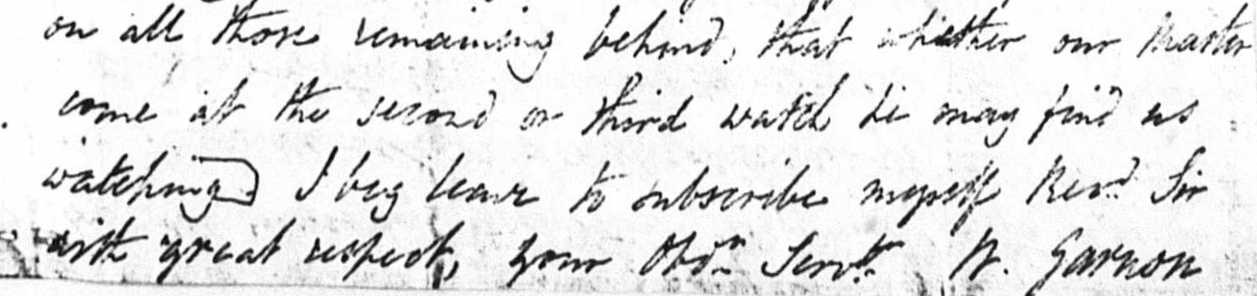 on all those remaining behind, that whether our Master
come at the second or third watch he may find us
watching] I beg leave to subscribe myself Revd. Sir
with great respect, your Obdn. Servtn. W. Garnon